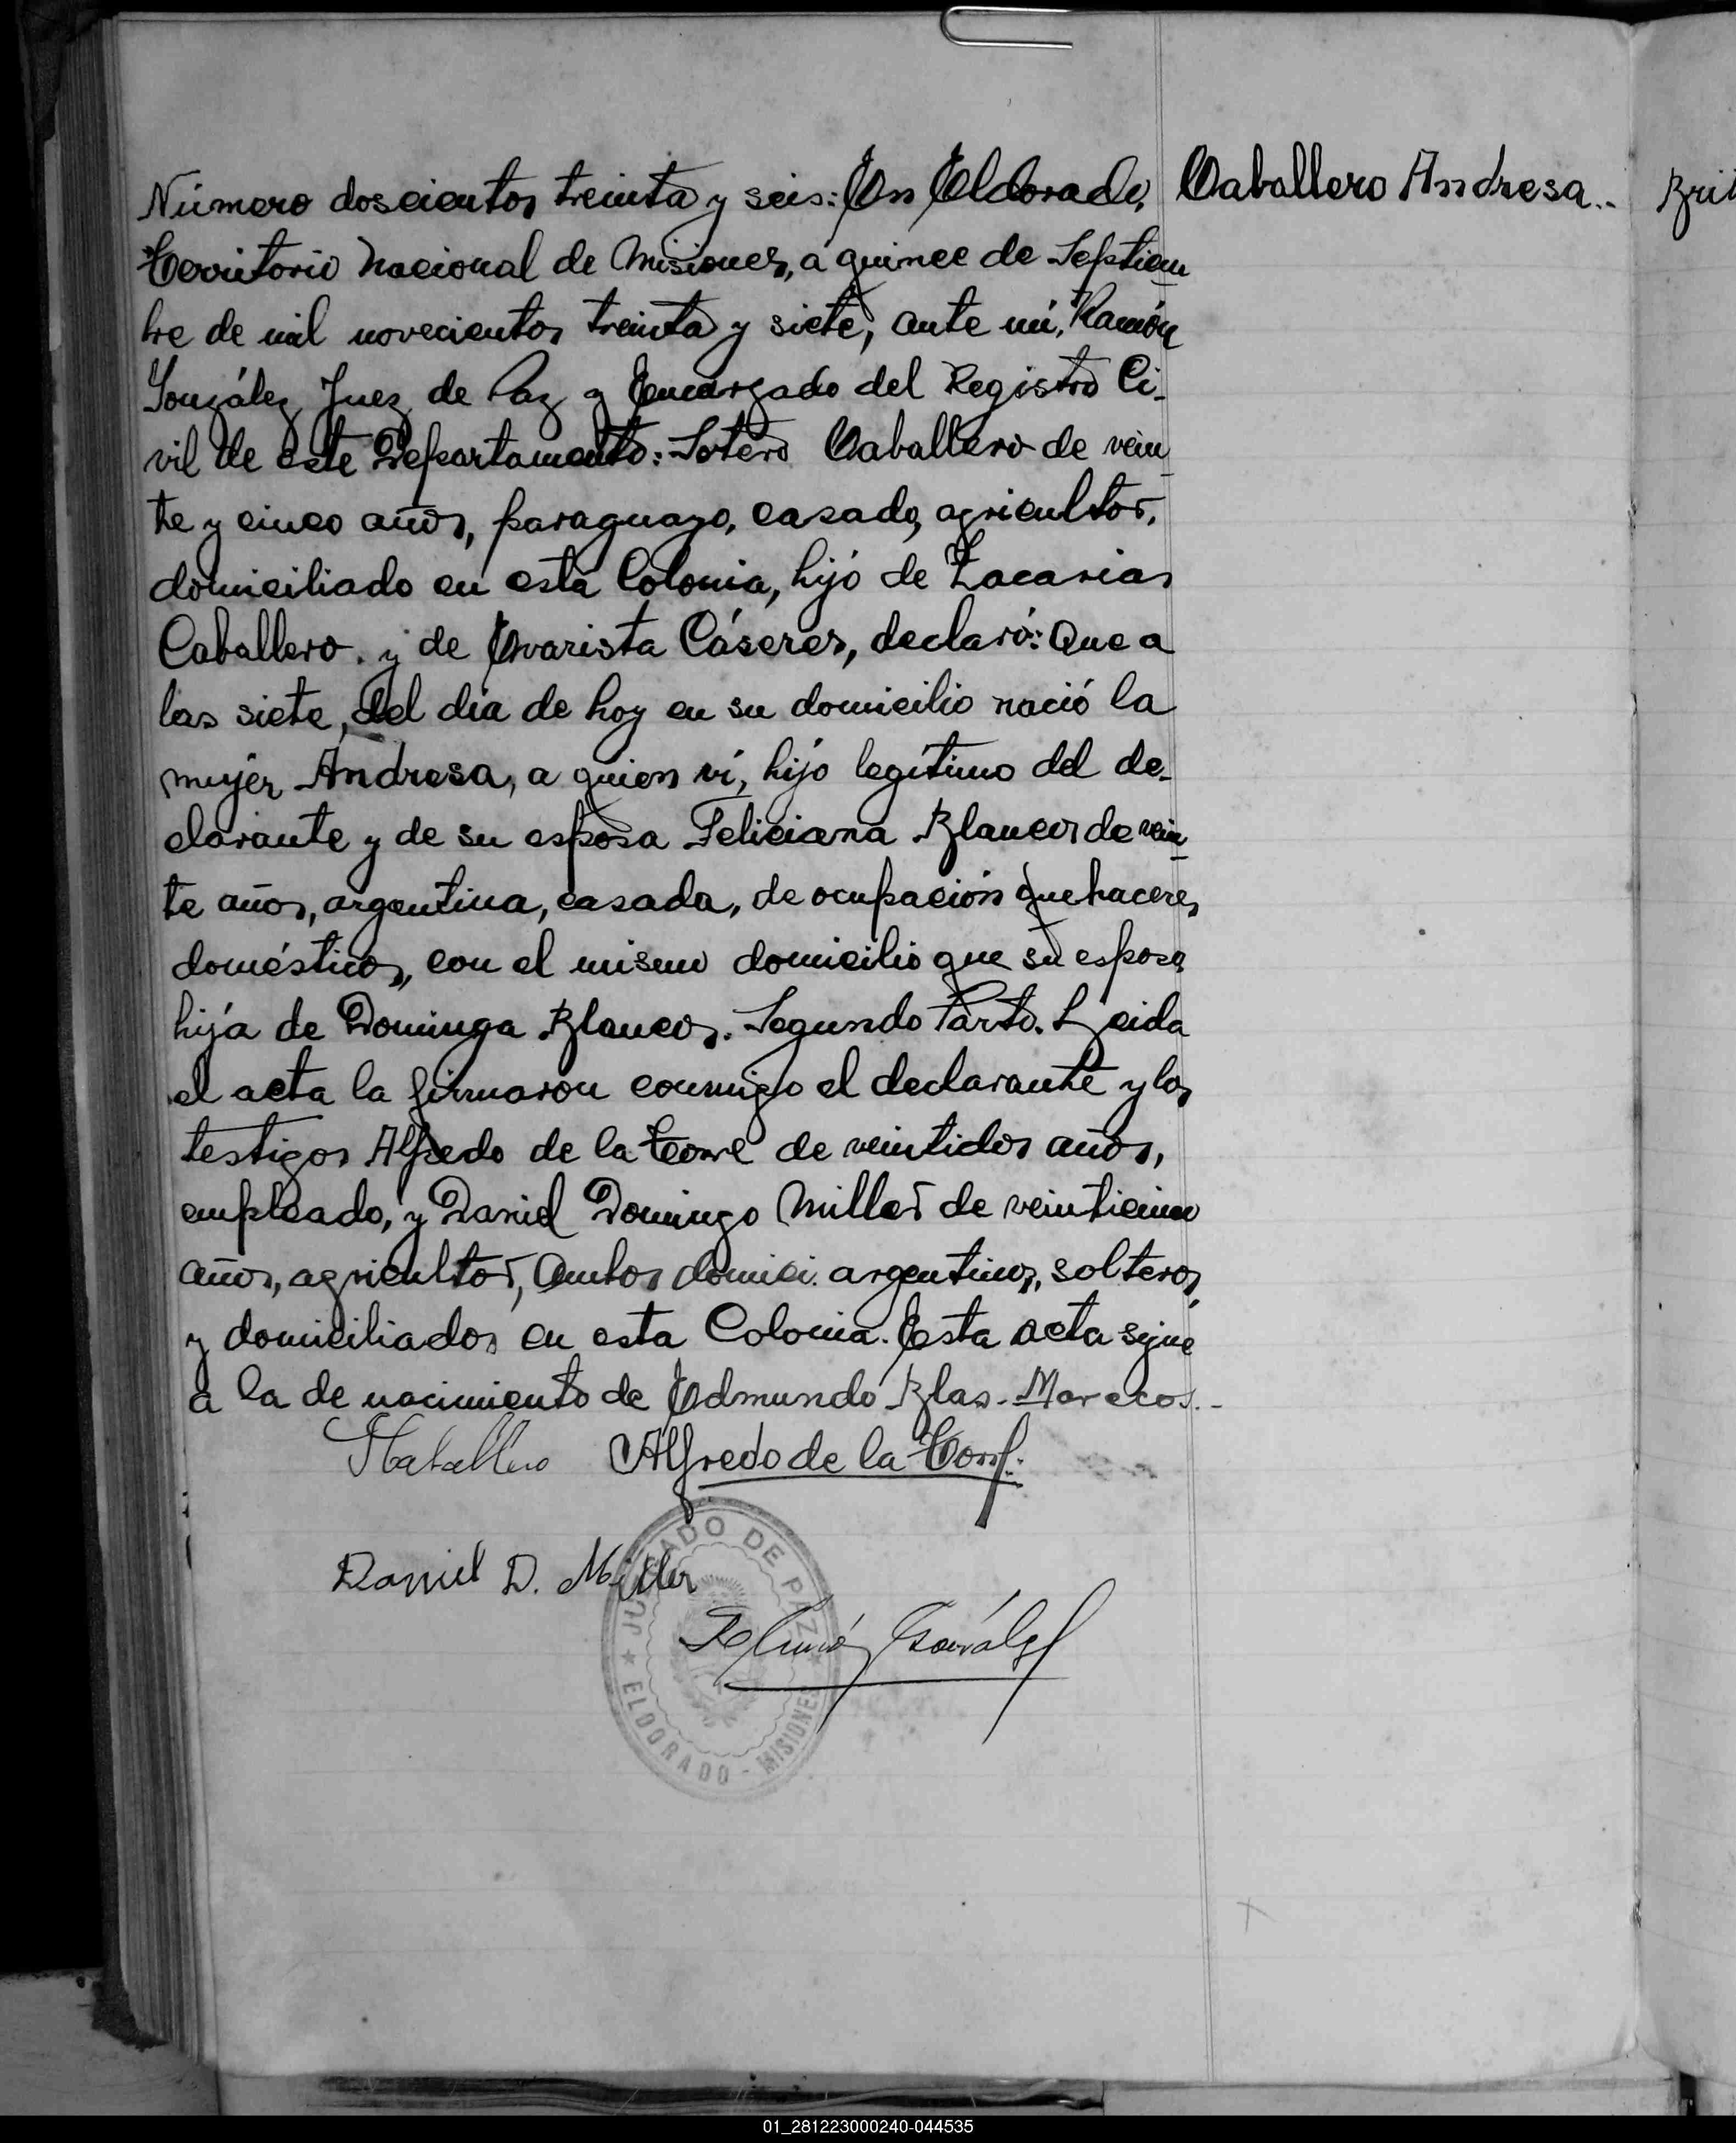 Número doscientos treinta y seis: En Eldorado, Caballero Andresa..
Territorio Nacional de Misiones, a quince de Septiem
bre de mil novecientos treinta y siete, ante mí, Ramón
González Juez de Paz y Encargado del Registro Ci-
vil de este Departamento: Sotero Caballero de vein
te y cinco años, paraguayo, casado, agricultor,
domiciliado en esta Colonia, hijo de Zacarias
Caballero. y de Evarista Cáseres, declaró: Que a
las siete, del día de hoy en su domicilio nació la
mujer Andresa, a quien ví, hijo legítimo del de-
clarante y de su esposa Feliciana Blancos de vein
te años, argentina, casada, de ocupación quehaceres
domésticos, con el mismo domicilio que su esposo,
hija de Dominga Blancos. Segundo Parto. Leida
el acta la firmaron conmigo el declarante y los
testigos Alfredo de la Torre de veintidos años,
empleado, y Daniel Domingo Miller de veinticinco
años, agricultor, Ambos domici. argentinos, solteros,
y domiciliados en esta Colonia. Esta acta sigue
a la de nacimiento de Edmundo Blas. Marecos.-
SCaballero Alfredo de la Torre.
Daniel D. Miller
Ramón González
JUZGADO DE PAZ
ELDORADO - MISIONES
01_281223000240-044535